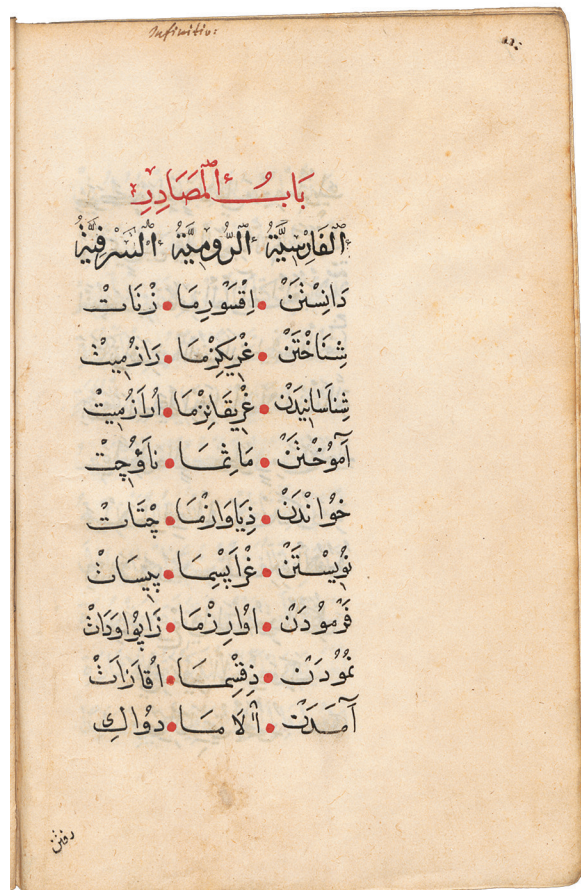 Infinitiv:
بَابُ ٱلْمَصَادِرِ
ٱلْفَارْسِيَّةُ ٱلرُّومِيَّةُ ٱلسَّرْفِيَّةُ
دَانِسْتَنْ • اِقْسَوْرِمَا • زْنَاتْ
شِنَاخْتَنْ • غْرِيكِزْمَا • رَازُمِيتْ
شِنَاسَانِيدَنْ • غْرِيقَانِزْمَا • اُرَازُمِيتْ
آمُوخْتَنْ • مَاثِمَا • نَاوُچِتْ
خْوَانْدَنْ • ذِيَاوَازْمَا • چْتَاتْ
نِوِيسْتَنْ • غْرَابْسِمَا • پِيسَاتْ
فَرْمُودَنْ • اوُارِزْمَا • زَاپُواوَدَاتْ
نَمُودَنْ • ذِقْسِمَا • اُقَازَاتْ
آمَدَنْ • ٱلَامَا • دوُاكِ
رفتن